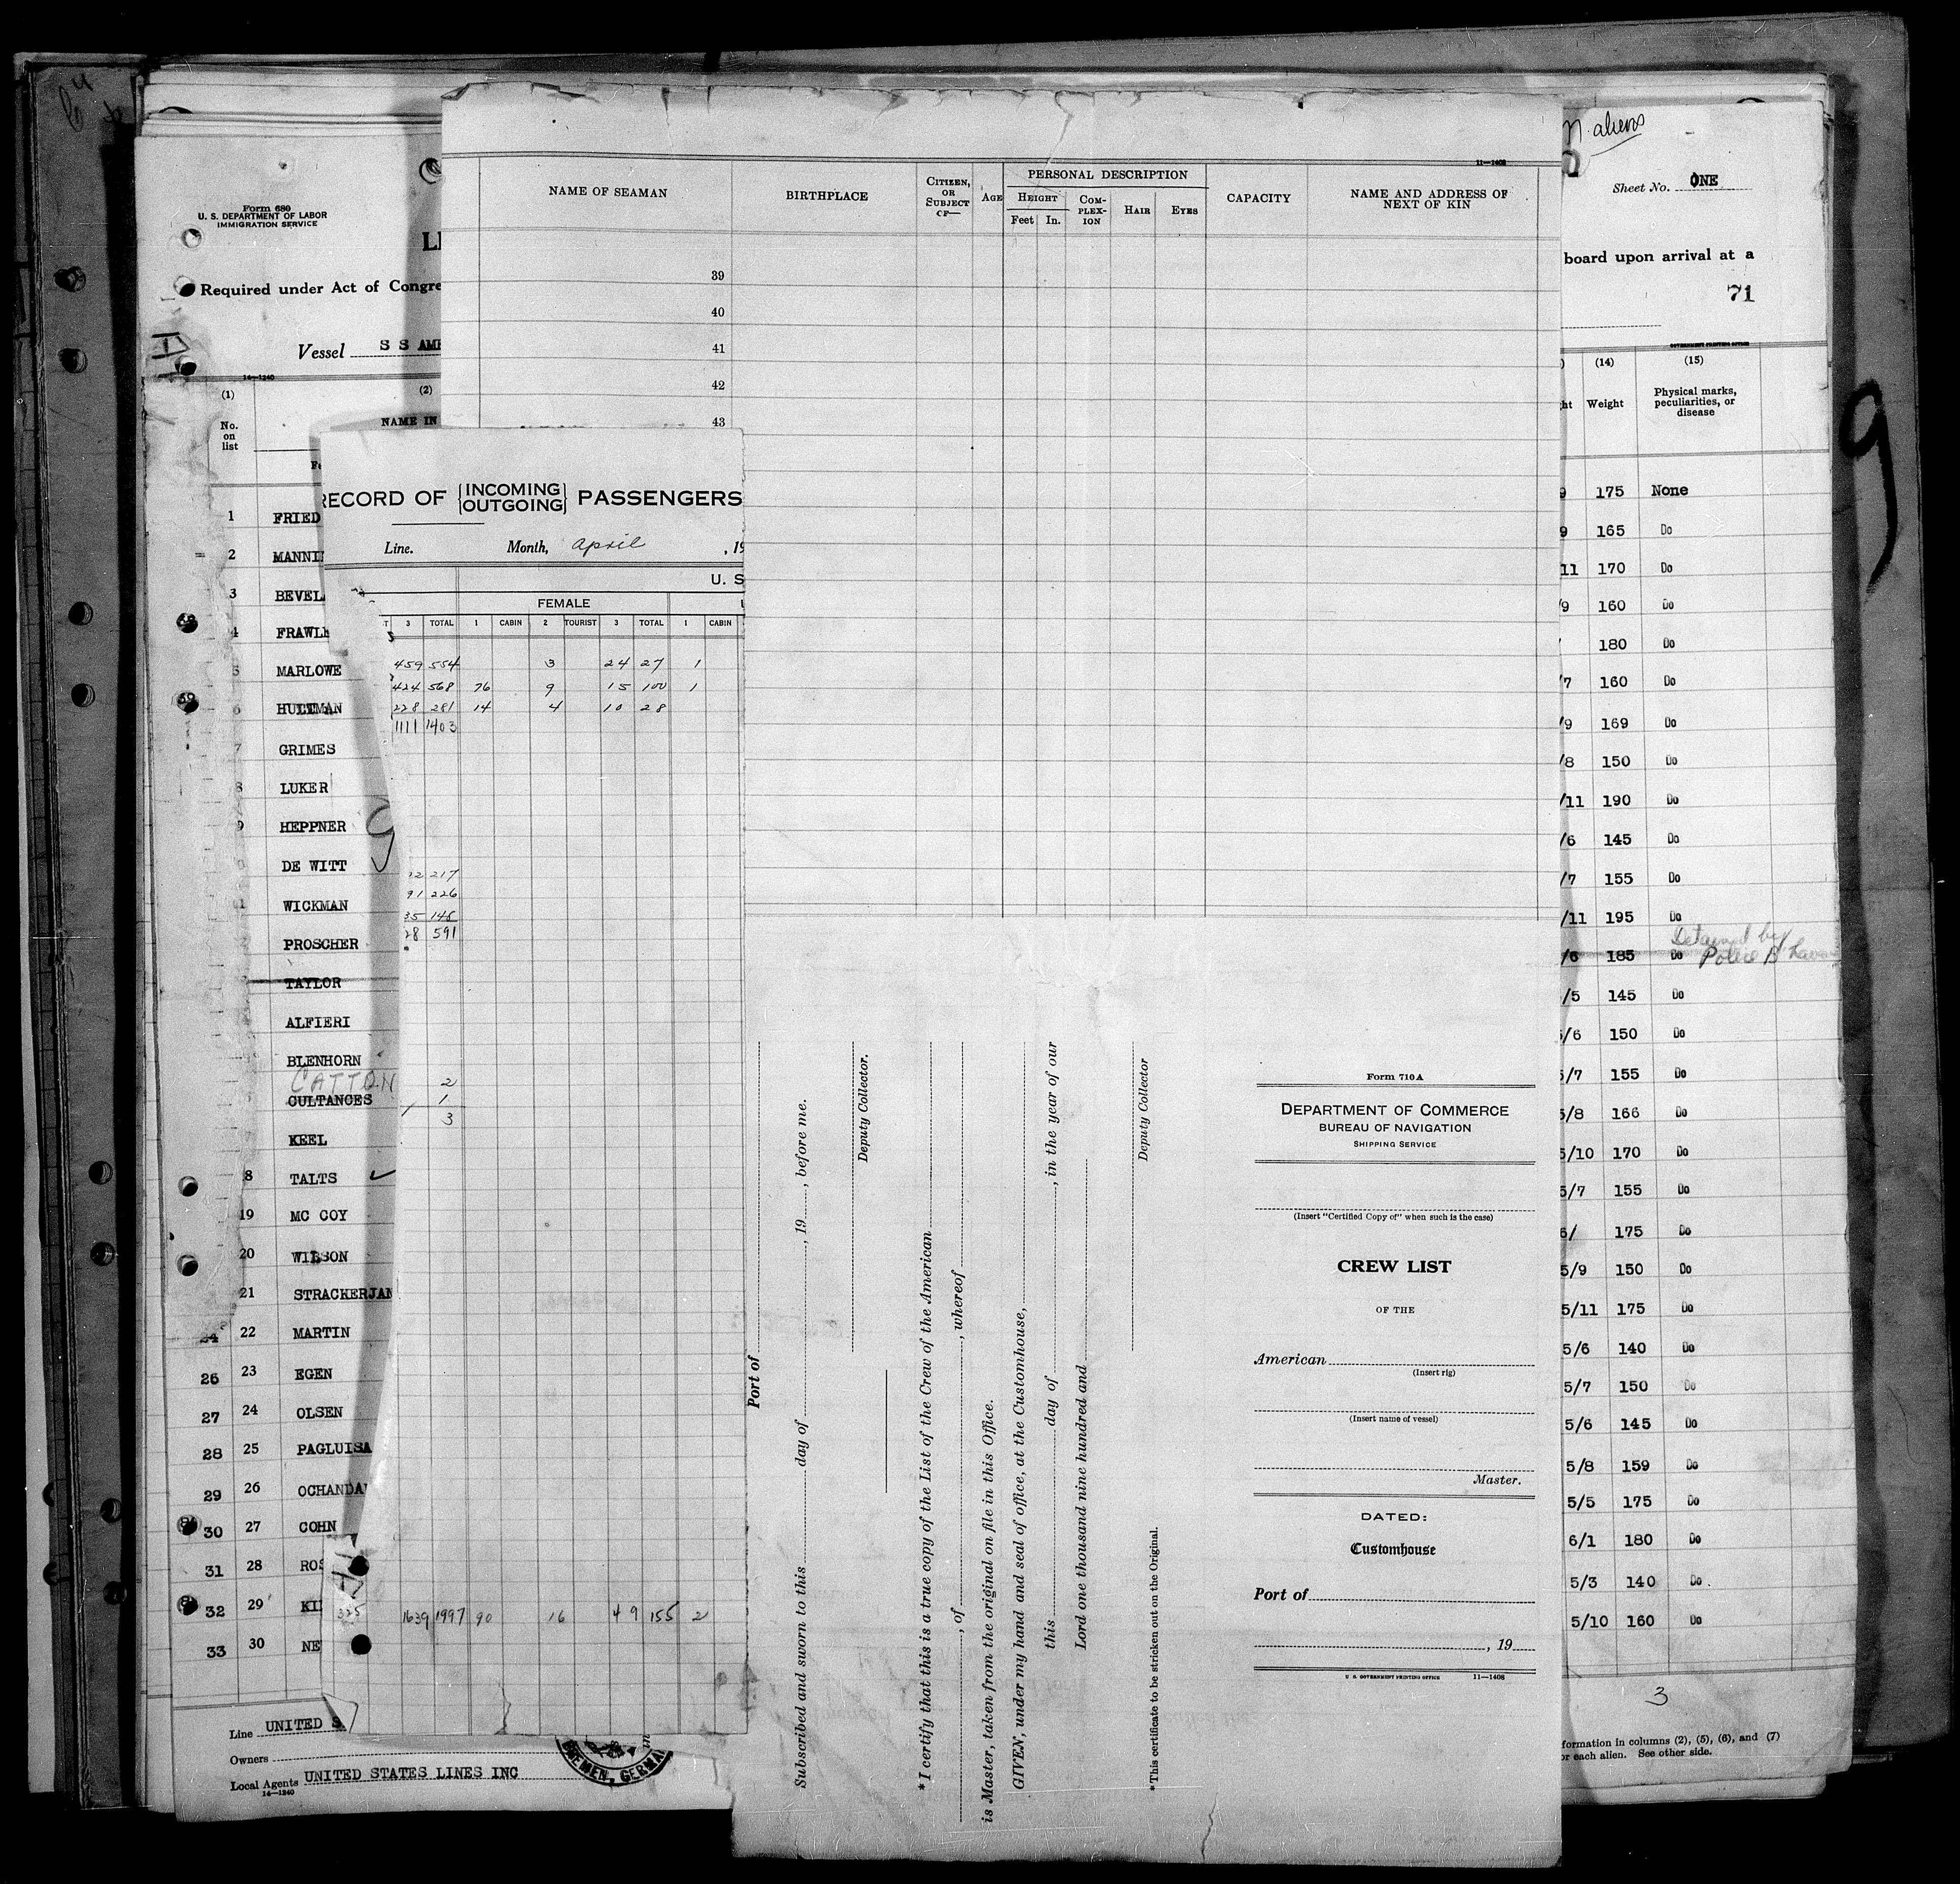 n. aliens
Sheet No. ONE
Form 680
U. S. DEPARTMENT OF LABOR
IMMIGRATION SERVICE
Required under Act of Congre
board upon arrival at a
71
Vessel S S AME
14—1240
GOVERNMENT PRINTING OFFICE
(1)
(2)
(14)
(15)
No.
on
list
NAME IN
ght
Weight
Physical marks,
peculiarities, or
disease
9
1 FRIED
9 175 None
= 2 MANNI
9 165 Do
3 BEVEL
11 170 Do
4 FRAWL
/9 160 Do
5 MARLOWE
180 Do
6 HULTMAN
/7 160 Do
7 GRIMES
/9 169 Do
8 LUKER
/8 150 Do
9 HEPPNER
/11 190 Do
DE WITT
/6 145 Do
WICKMAN
/7 155 Do
PROSCHER
/11 195 Do
Detained by
TAYLOR
/6 185 Do Police B'
ALFIERI
/5 145 Do
BLENHORN
5/6 150 Do
CATTON
CULTANCES
5/7 155 Do
KEEL
5/8 166 Do
8 TALTS
5/10 170 Do
19 MC COY
5/7 155 Do
20 WILSON
6/ 175 Do
21 STRACKERJAN
5/9 150 Do
22 MARTIN
5/11 175 Do
26 23 EGEN
5/6 140 Do
27 24 OLSEN
5/7 150 Do
28 25 PAGLUISA
5/6 145 Do
29 26 OCHANDA
5/8 159 Do
30 27 COHN
5/5 175 Do
31 28 ROS
6/1 180 Do
32 29 KI
5/3 140 Do.
33 30 NE
5/10 160 Do
3
Line UNITED S
Owners
Local Agents UNITED STATES LINES INC
14—1240
BREMEN, GERMA
formation in columns (2), (5), (6), and (7)
or each alien. See other side.
RECORD OF {INCOMING OUTGOING} PASSENGERS
Line. Month, April , 19
U. S
FEMALE
3 TOTAL 1 CABIN 2 TOURIST 3 TOTAL 1 CABIN
459 554 3 24 27 1
424 568 76 9 15 100 1
228 281 14 4 10 28
1111 1403
12 217
91 226
35 148
28 591
2
1
3
325 1639 1997 90 16 49 155 2
11—1408
NAME OF SEAMAN
BIRTHPLACE
CITIZEN,
OR
SUBJECT
OF—
AGE
PERSONAL DESCRIPTION
HEIGHT
Feet In.
COM-
PLEX-
ION
HAIR
EYES
CAPACITY
NAME AND ADDRESS OF
NEXT OF KIN
39
40
41
42
43
Port of
Subscribed and sworn to this day of , 19 , before me.
Deputy Collector.
*I certify that this is a true copy of the List of the Crew of the American
, of , whereof
is Master, taken from the original on file in this Office.
GIVEN, under my hand and seal of office, at the Customhouse,
this day of , in the year of our
Lord one thousand nine hundred and
Deputy Collector
*This certificate to be stricken out on the Original.
Form 710A
DEPARTMENT OF COMMERCE
BUREAU OF NAVIGATION
SHIPPING SERVICE
(Insert "Certified Copy of" when such is the case)
CREW LIST
OF THE
American
(Insert rig)
(Insert name of vessel)
Master.
DATED:
Customhouse
Port of
, 19
U. S. GOVERNMENT PRINTING OFFICE 11—1408